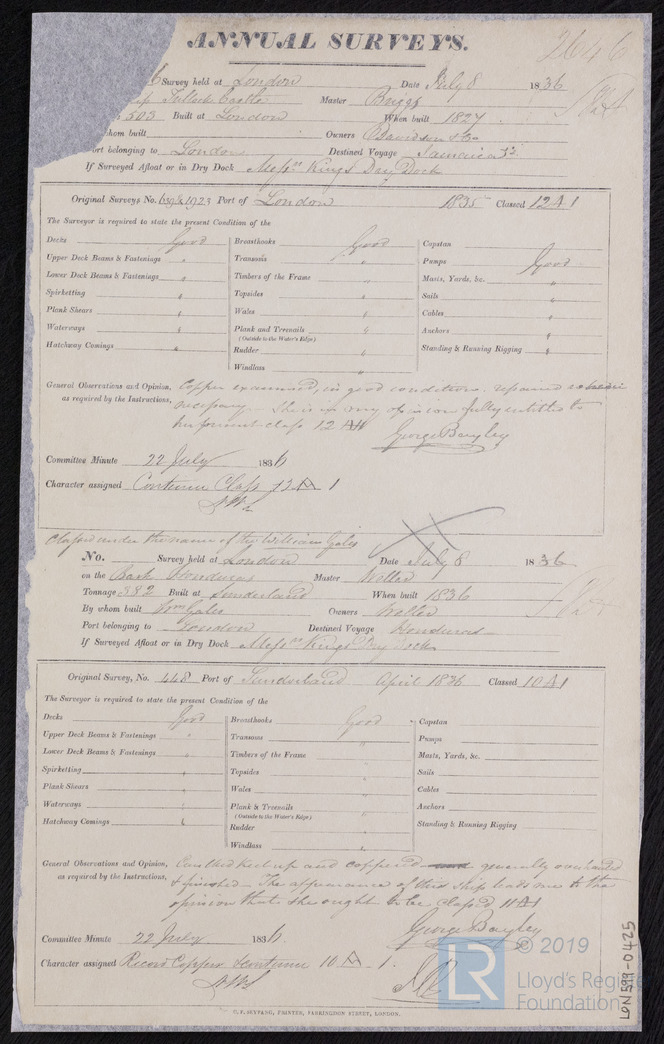 ANNUAL SURVEYS.
2646
Survey held at London Date July 8 1836
Tulloch Castle Master Briggs
503 Built at London When built 1827
whom built Owners Davidson & Co
ort belonging to London Destined Voyage Jamaica
If Surveyed Afloat or in Dry Dock Messrs Kings Dry Dock
Original Surveys No. 1923 Port of London 1835 Classed 12 A 1
The Surveyor is required to state the present Condition of the
Decks Good
Upper Deck Beams & Fastenings "
Lower Deck Beams & Fastenings "
Spirketting "
Plank Shears "
Waterways "
Hatchway Comings "
Breasthooks Good
Transoms "
Timbers of the Frame "
Topsides "
Wales "
Plank and Treenails "
(Outside to the Water's Edge)
Rudder "
Windlass "
Capstan
Pumps Good
Masts, Yards, &c. "
Sails "
Cables "
Anchors "
Standing & Running Rigging "
General Observations and Opinion, Copper examined, in good condition. repaired
as required by the Instructions, necessary - She is in my opinion fully entitled to
her present class 12 A1
George Bayley
Committee Minute 22 July 1836
Character assigned Continue Class 12 A 1
Classed under the name of the William Gales
No. Survey held at London Date July 8 1836
on the Bark Honduras Master Weller
Tonnage 382 Built at Sunderland When built 1836
By whom built Wm Gales Owners Weller
Port belonging to London Destined Voyage Honduras
If Surveyed Afloat or in Dry Dock Messrs Kings Dry Dock
Original Survey, No. 448 Port of Sunderland April 1836 Classed 10 A 1
The Surveyor is required to state the present Condition of the
Decks Good
Upper Deck Beams & Fastenings "
Lower Deck Beams & Fastenings "
Spirketting "
Plank Shears "
Waterways "
Hatchway Comings "
Breasthooks Good
Transoms "
Timbers of the Frame "
Topsides "
Wales "
Plank & Treenails "
(Outside to the Water's Edge)
Rudder "
Windlass "
Capstan
Pumps
Masts, Yards, &c.
Sails
Cables
Anchors
Standing & Running Rigging
General Observations and Opinion, Caulked keel up and coppered generally overhauled
as required by the Instructions, & finished - The appearance of this ship leads me to the
opinion that she ought to be classed 11 A1
George Bayley
Committee Minute 22 July 1836.
Character assigned Record Copper & continue 10 A 1.
C. F. SEYFANG, PRINTER, FARRINGDON STREET, LONDON.
LR © 2019
Lloyd's Register
Foundation
LON599-0425